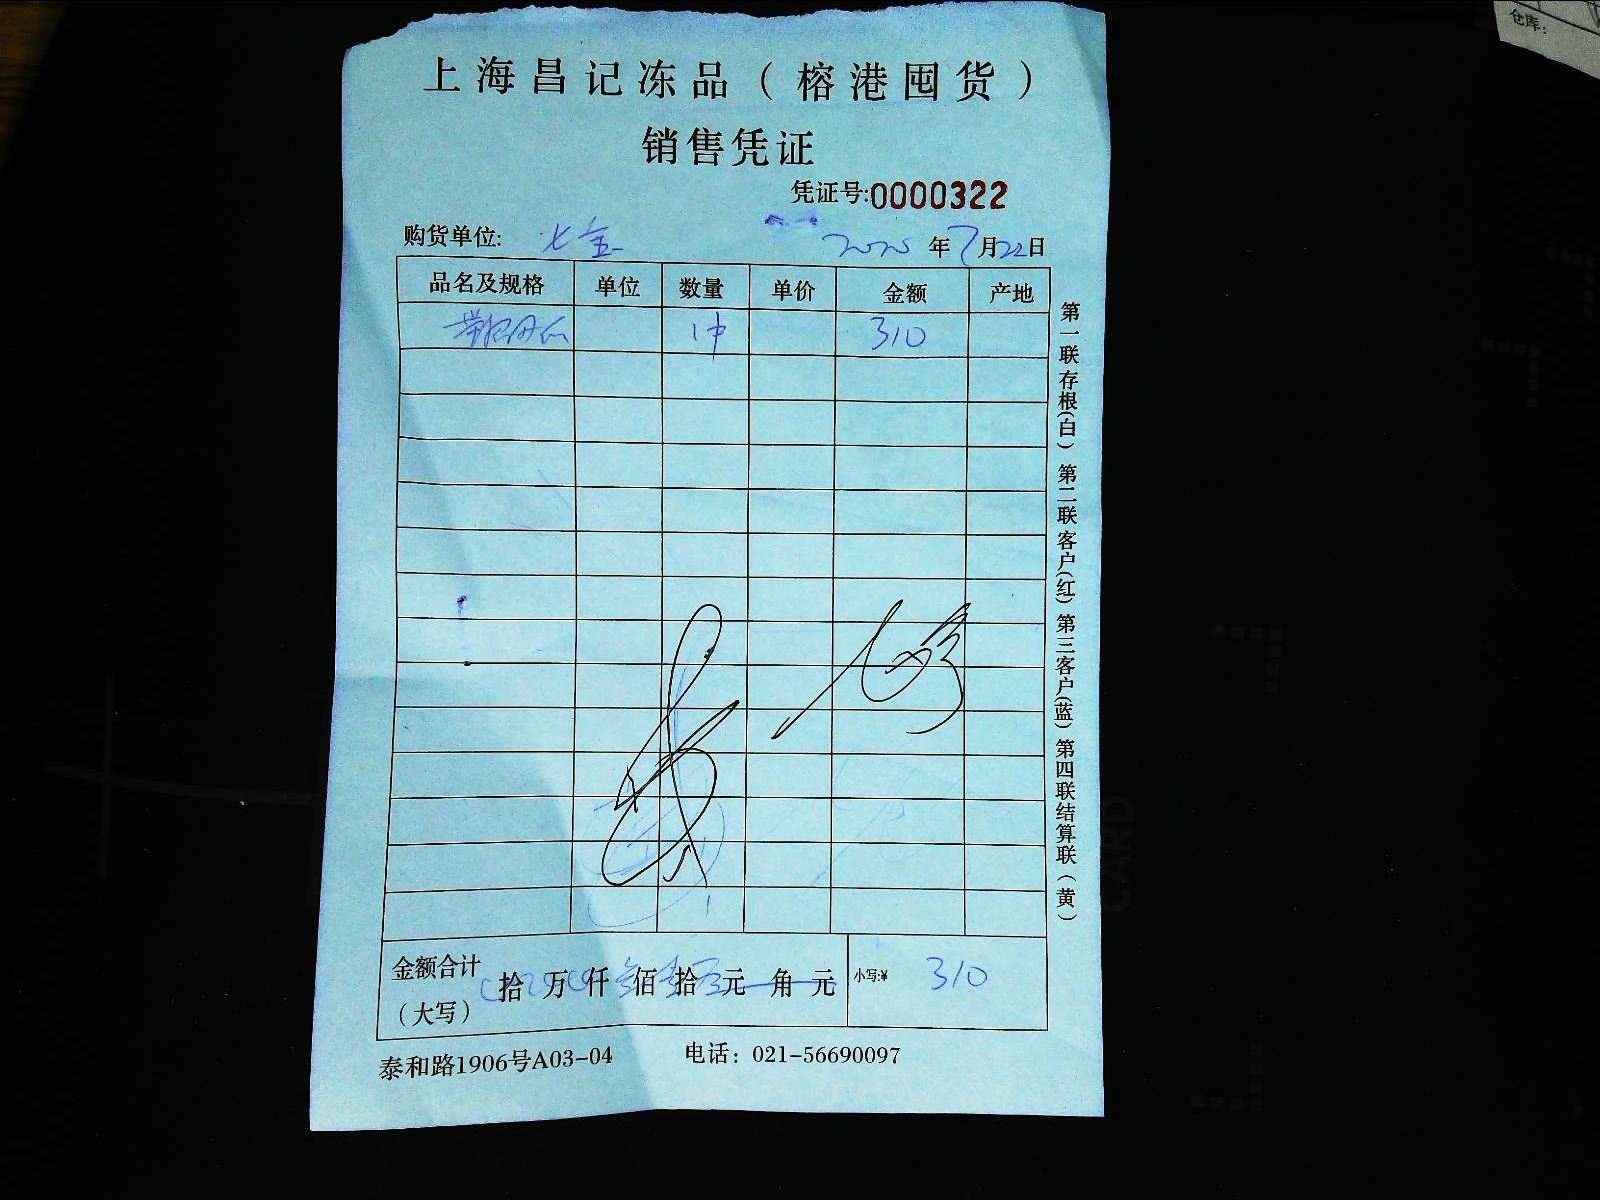 仓库:
上海昌记冻品(榕港囤货)
销售凭证
凭证号:0000322
购货单位: 七宝 2020 年 7 月 22 日
品名及规格 单位 数量 单价 金额 产地
1件 310
第一联存根(白) 第二联客户(红) 第三客户(蓝) 第四联结算联(黄)
金额合计 拾 万 仟 叁 佰 壹 拾 元 角 元 小写:¥ 310
(大写)
泰和路1906号A03-04 电话: 021-56690097
CARD